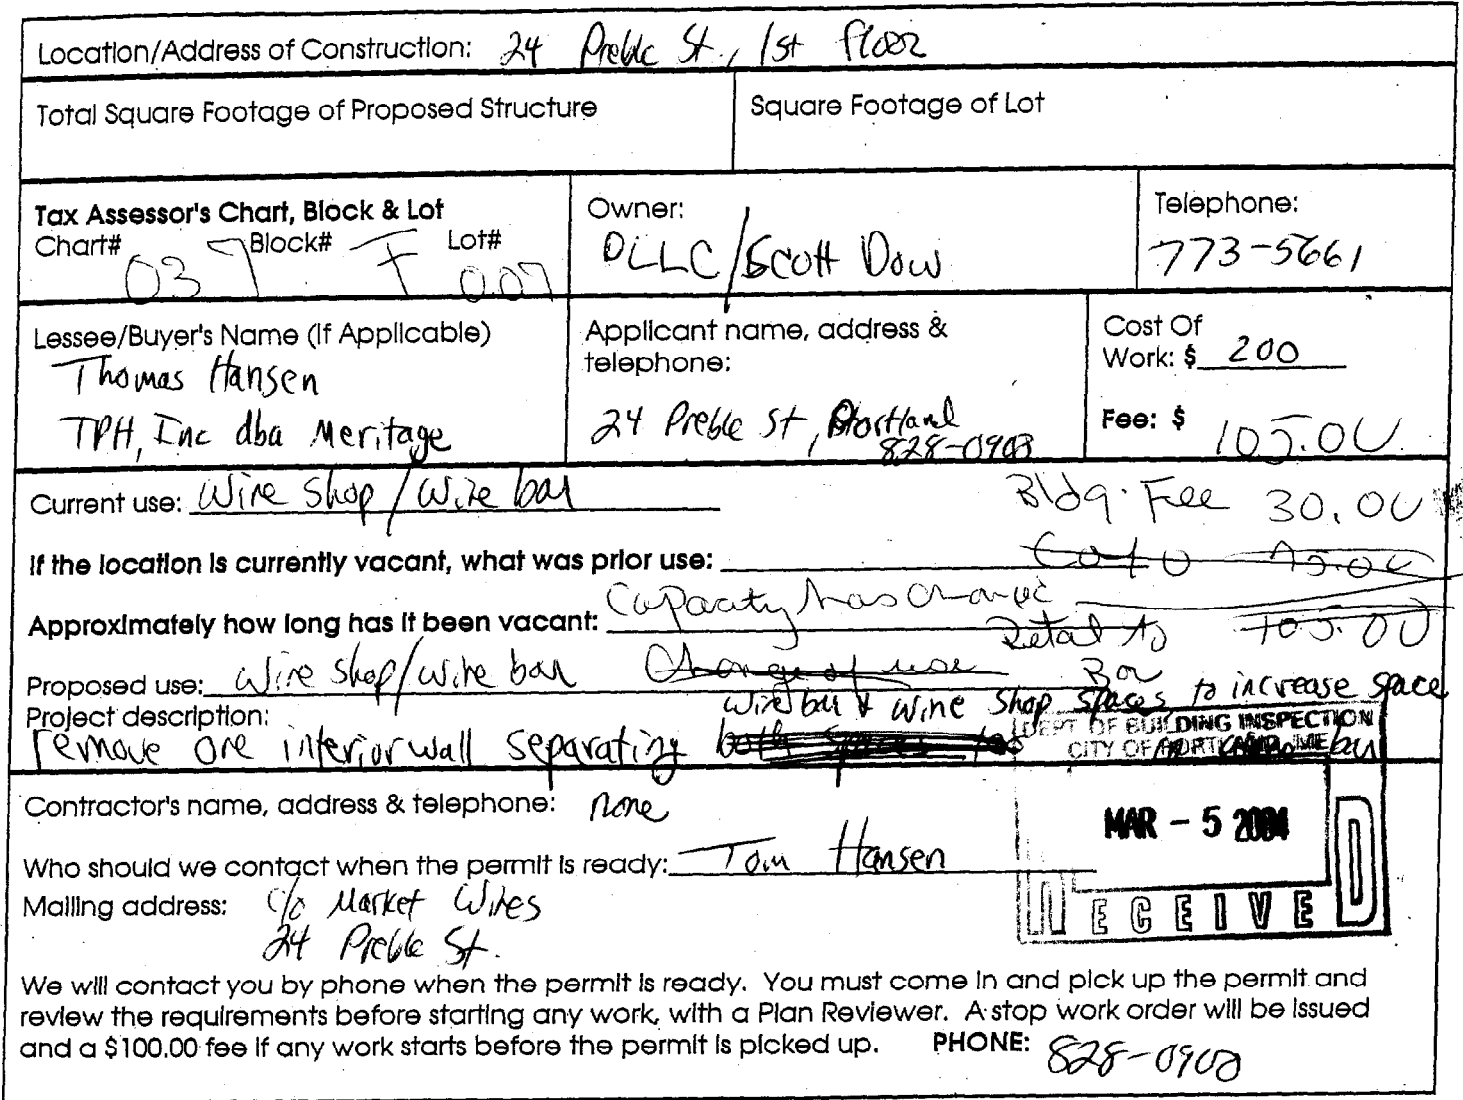 Location/Address of Construction: 24 Preble St., 1st floor
Total Square Footage of Proposed Structure
Square Footage of Lot
Tax Assessor's Chart, Block & Lot
Chart# Block# Lot#
037 F 007
Owner:
DLLC/Scott Dow
Telephone:
773-5661
Lessee/Buyer's Name (If Applicable)
Thomas Hansen
TPH, Inc dba Meritage
Applicant name, address &
telephone:
24 Preble St, Portland
828-0900
Cost Of
Work: $ 200
Fee: $ 105.00
Current use: Wine Shop/Wine bar
Bldg. Fee 30.00
If the location is currently vacant, what was prior use:
C of O 75.00
Approximately how long has it been vacant: Capacity has change
Retail to 105.00
Bar
Proposed use: Wine Shop/Wine bar Change of use
Project description: wine bar & wine shop spaces, to increase space
remove one interior wall separating both spaces bar
DEPT OF BUILDING INSPECTION
CITY OF PORTLAND, ME
MAR - 5 2004
RECEIVED
Contractor's name, address & telephone: none
Who should we contact when the permit is ready: Tom Hansen
Mailing address: c/o Market Wines
24 Preble St.
We will contact you by phone when the permit is ready. You must come in and pick up the permit and
review the requirements before starting any work, with a Plan Reviewer. A stop work order will be issued
and a $100.00 fee if any work starts before the permit is picked up. PHONE: 828-0900